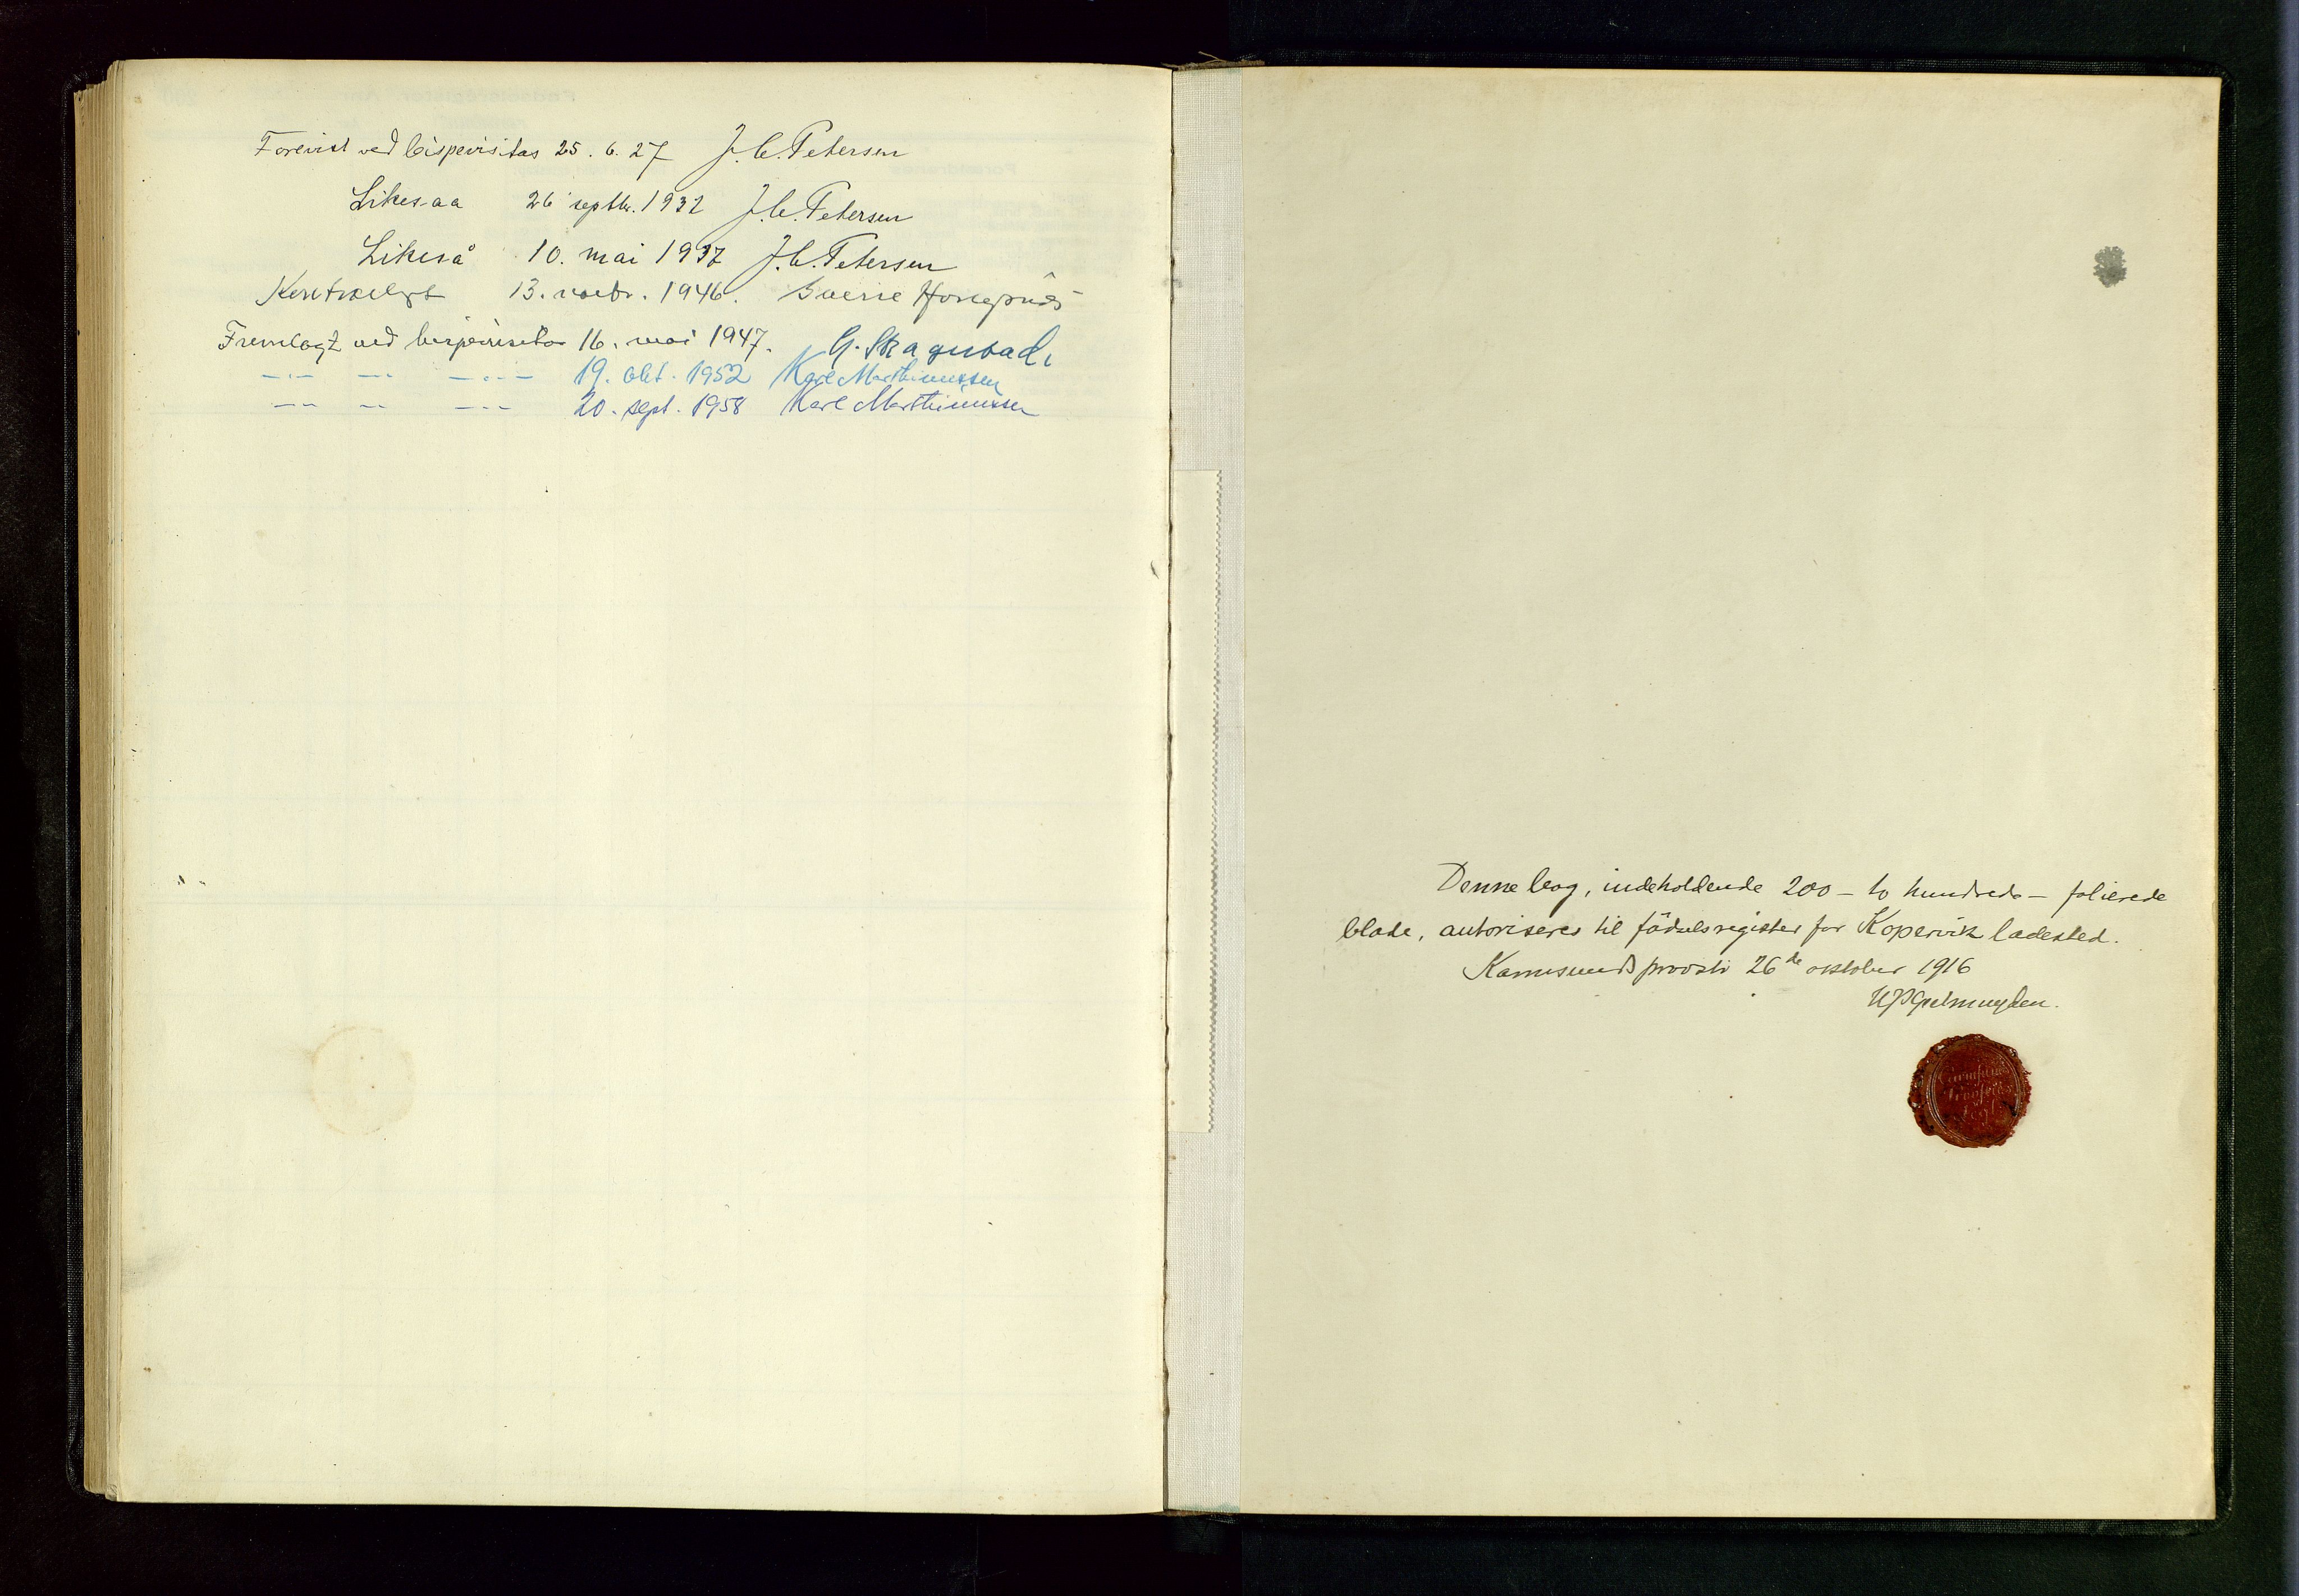 Forevist ved bispevisitas 25. 6. 27 J. C. Petersen
Likesaa 26 septbr. 1932 J. C. Petersen
Likeså 10. mai 1937 J. C. Petersen
13. novbr. 1946. Sverre
Fremlagt ved bispevisitas 16. mai 1947. G. Skagestad
—"— —"— —"— 19. okt. 1952 Karl Marthinussen
—"— —"— —"— 20. sept. 1958 Karl Marthinussen
Denne bog, indeholdende 200 – to hundrede – folierede
blade, autoriseres til födselsregister for Kopervik ladested.
Karmsunds provsti 26de oktober 1916